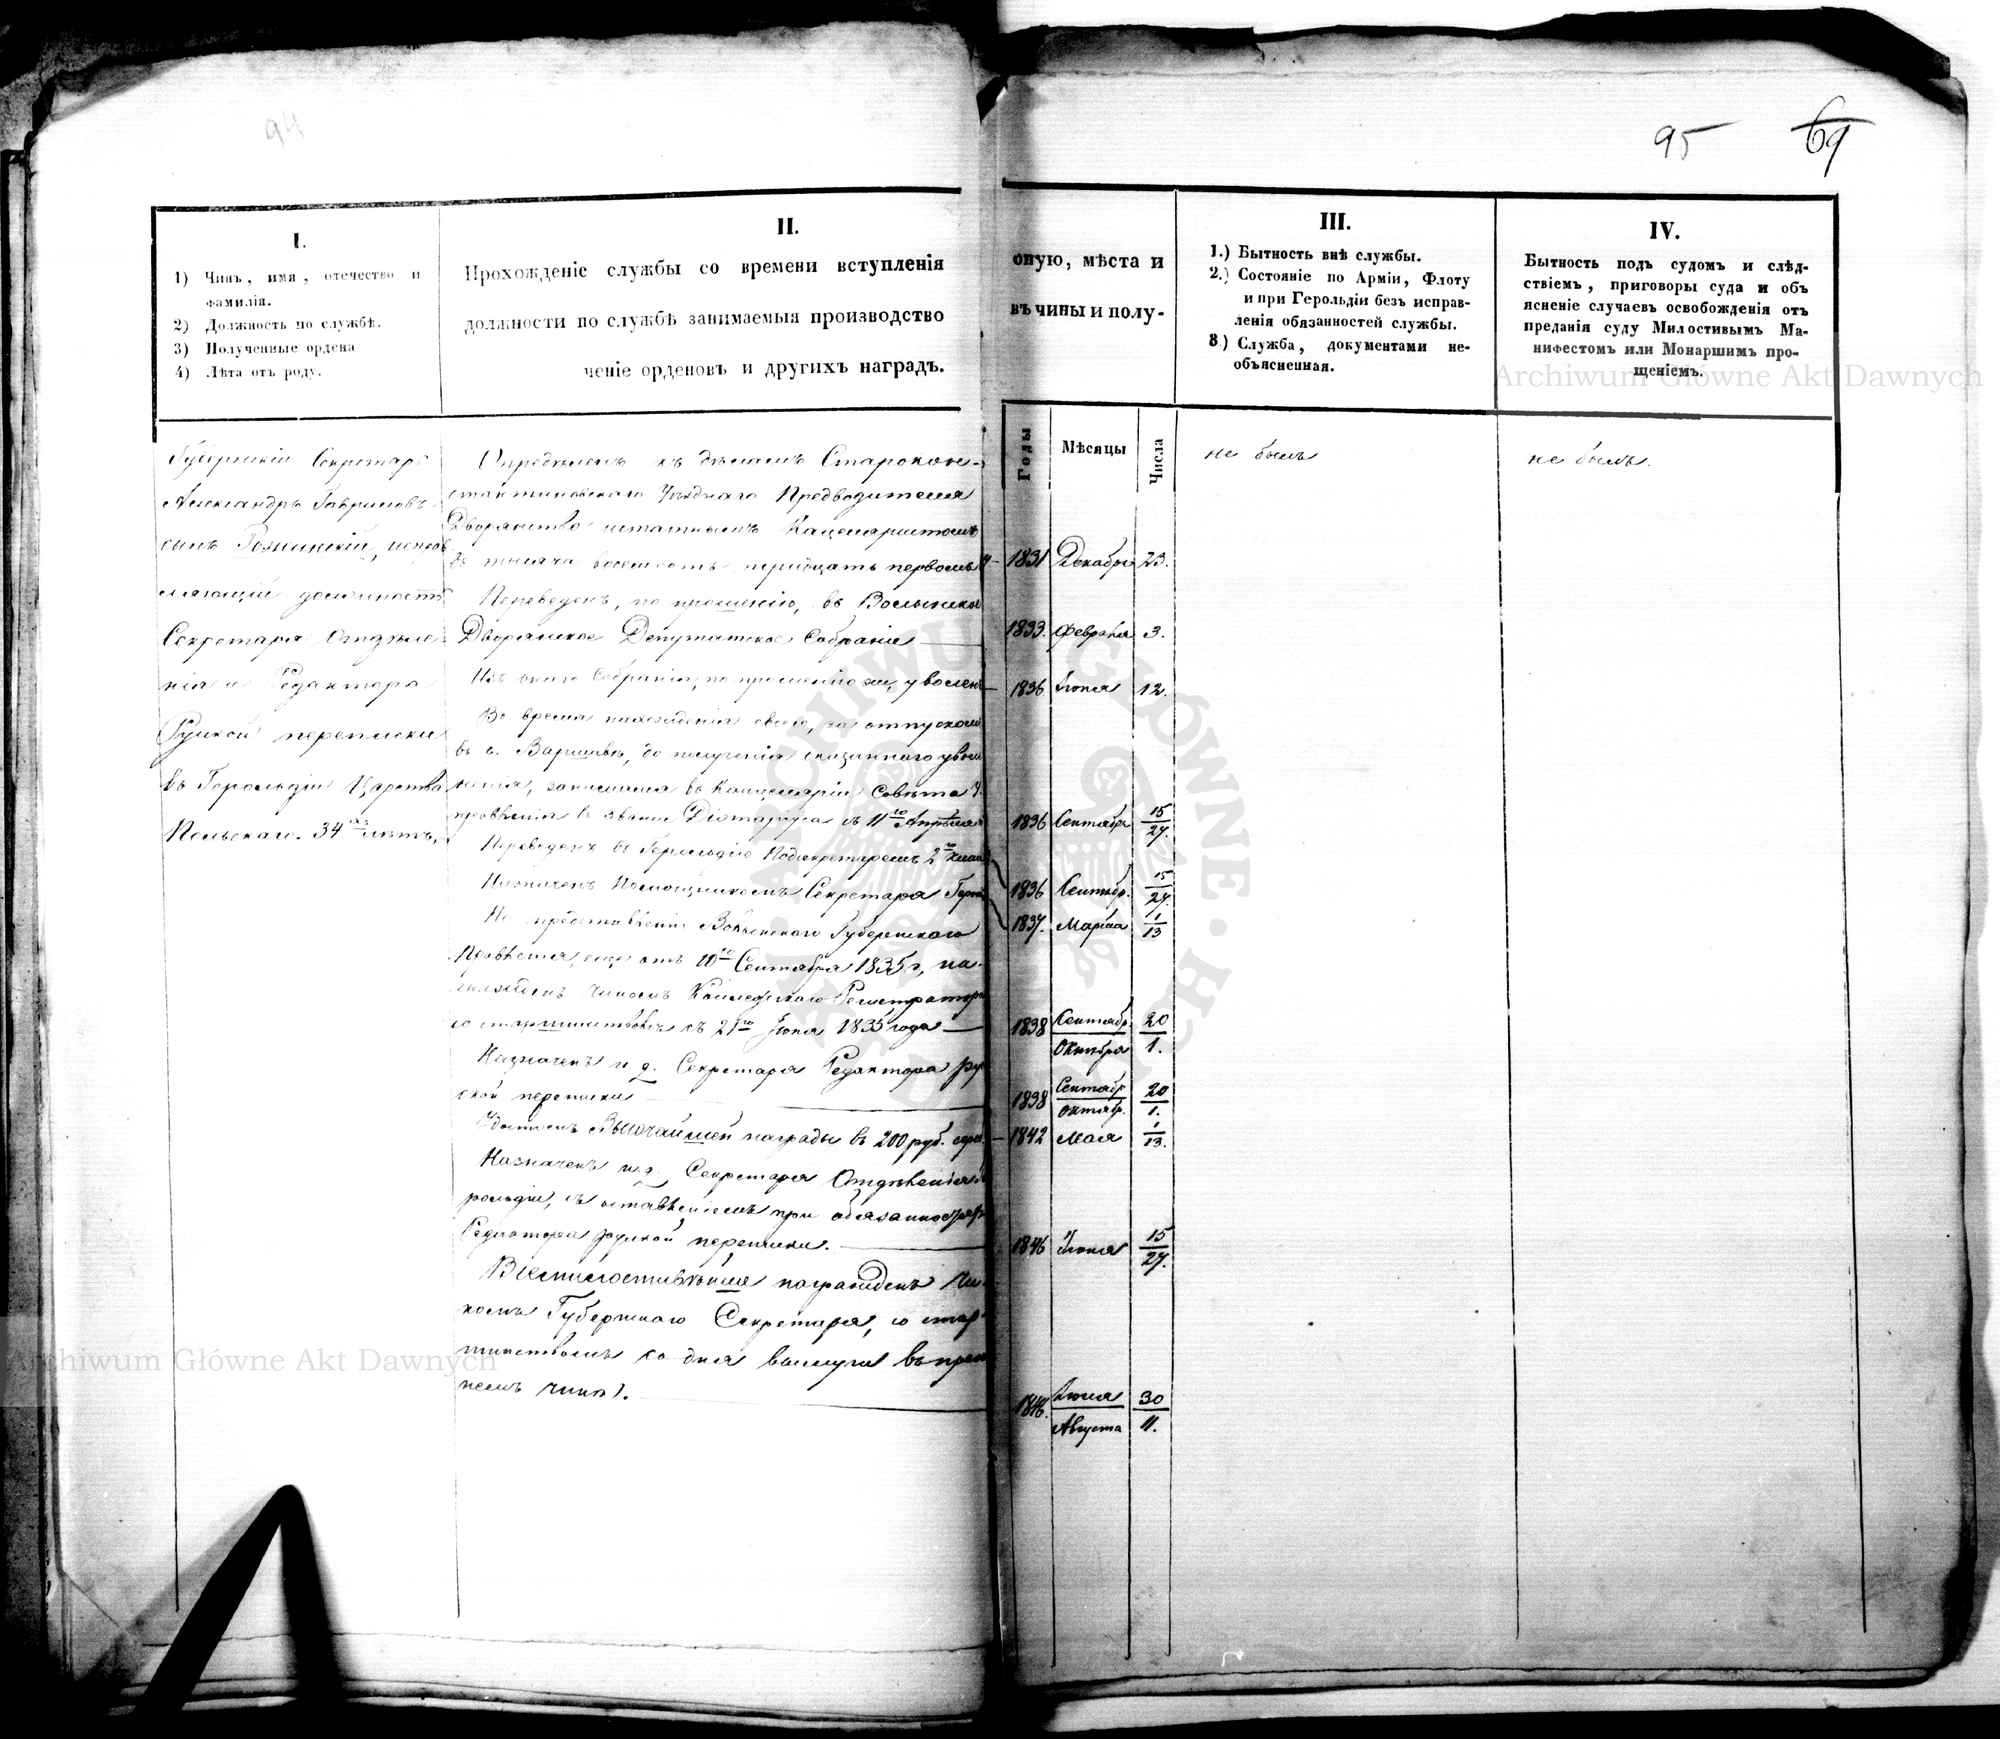 94
95
69
I.
1) Чинъ, имя, отечество и
фамилія.
2) Должность по службѣ.
3) Полученные ордена
4) Лѣта отъ роду.
II.
Прохожденіе службы со времени вступленія
должности по службѣ занимаемыя производство
ченіе орденовъ и другихъ наградъ.
оную, мѣста и
въ чины и полу-
III.
1.) Бытность внѣ службы.
2.) Состояніе по Арміи, Флоту
и при Герольдіи безъ исправ-
ленія обязанностей службы.
3) Служба, документами не-
объясненная.
IV.
Бытность подъ судомъ и слѣд-
ствіемъ, приговоры суда и объ
ясненіе случаевъ освобожденія отъ
преданія суду Милостивымъ Ма-
нифестомъ или Монаршимъ про-
щеніемъ.
Годы
Мѣсяцы
Числа
Губернскій Секретарь
Александръ Гавриловъ
сынъ
должность
Секретаря Отдѣле
нія и Редактора
Руской переписки
въ Герольдіи Царства
Польскаго. 34 лѣтъ.
Опредѣленъ къ дѣламъ Старокон-
стантиновскаго Уѣзднаго Предводителя
Дворянства штатнымъ Канцеляристомъ
въ тысяча восемьсотъ тридцать первомъ
Переведенъ, по прошенію, въ Волынское
Дворянское Депутатское Собраніе
Изъ онаго Собранія, по прошенію же, уволенъ
Во время нахожденія своего, за отпускомъ
въ г. Варшавѣ, до полученія сказаннаго уволь
ненія, въ Канцелярію Совѣта У
правленія въ званіи Діэтаріуса съ 11го Апрѣля
Переведенъ въ Герольдію Подсекретаремъ 2го
Назначенъ Помощникомъ Секретаря
По представленію Волынскаго Губернскаго
Правленія, еще отъ 10го Сентября 1835 г, на-
гражденъ чиномъ Коллежскаго Регистратора
со старшинствомъ съ 21го Іюня 1835 года
Назначенъ и. д. Секретаря Редактора ру
ской переписки
Удостоенъ Высочайшей награды въ 200 руб. сереб.
Назначенъ и.д. Секретаря Отдѣленія Ге
рольдіи, съ оставленіемъ при обязанностяхъ
Редактора руской переписки.
Всемилостивѣйше награжденъ Чи-
номъ Губернскаго Секретаря, со стар-
шинствомъ со дня выслуги въ преж
немъ чинѣ.
1831 Декабря 23.
1833. Февраля 3.
1836 Іюня 12.
1836 Сентябр. 15/27.
1836 Сентябр. 15/27.
1837. Марта 1/13
1838 Сентябр. 20
Октября 1.
1838 Сентябр. 20
Октябр. 1.
1842 Мая 1/13.
1846 Іюня 15/27.
30
Августа 11.
не былъ
не былъ.
Archiwum Główne Akt Dawnych
Archiwum Główne Akt Dawnych